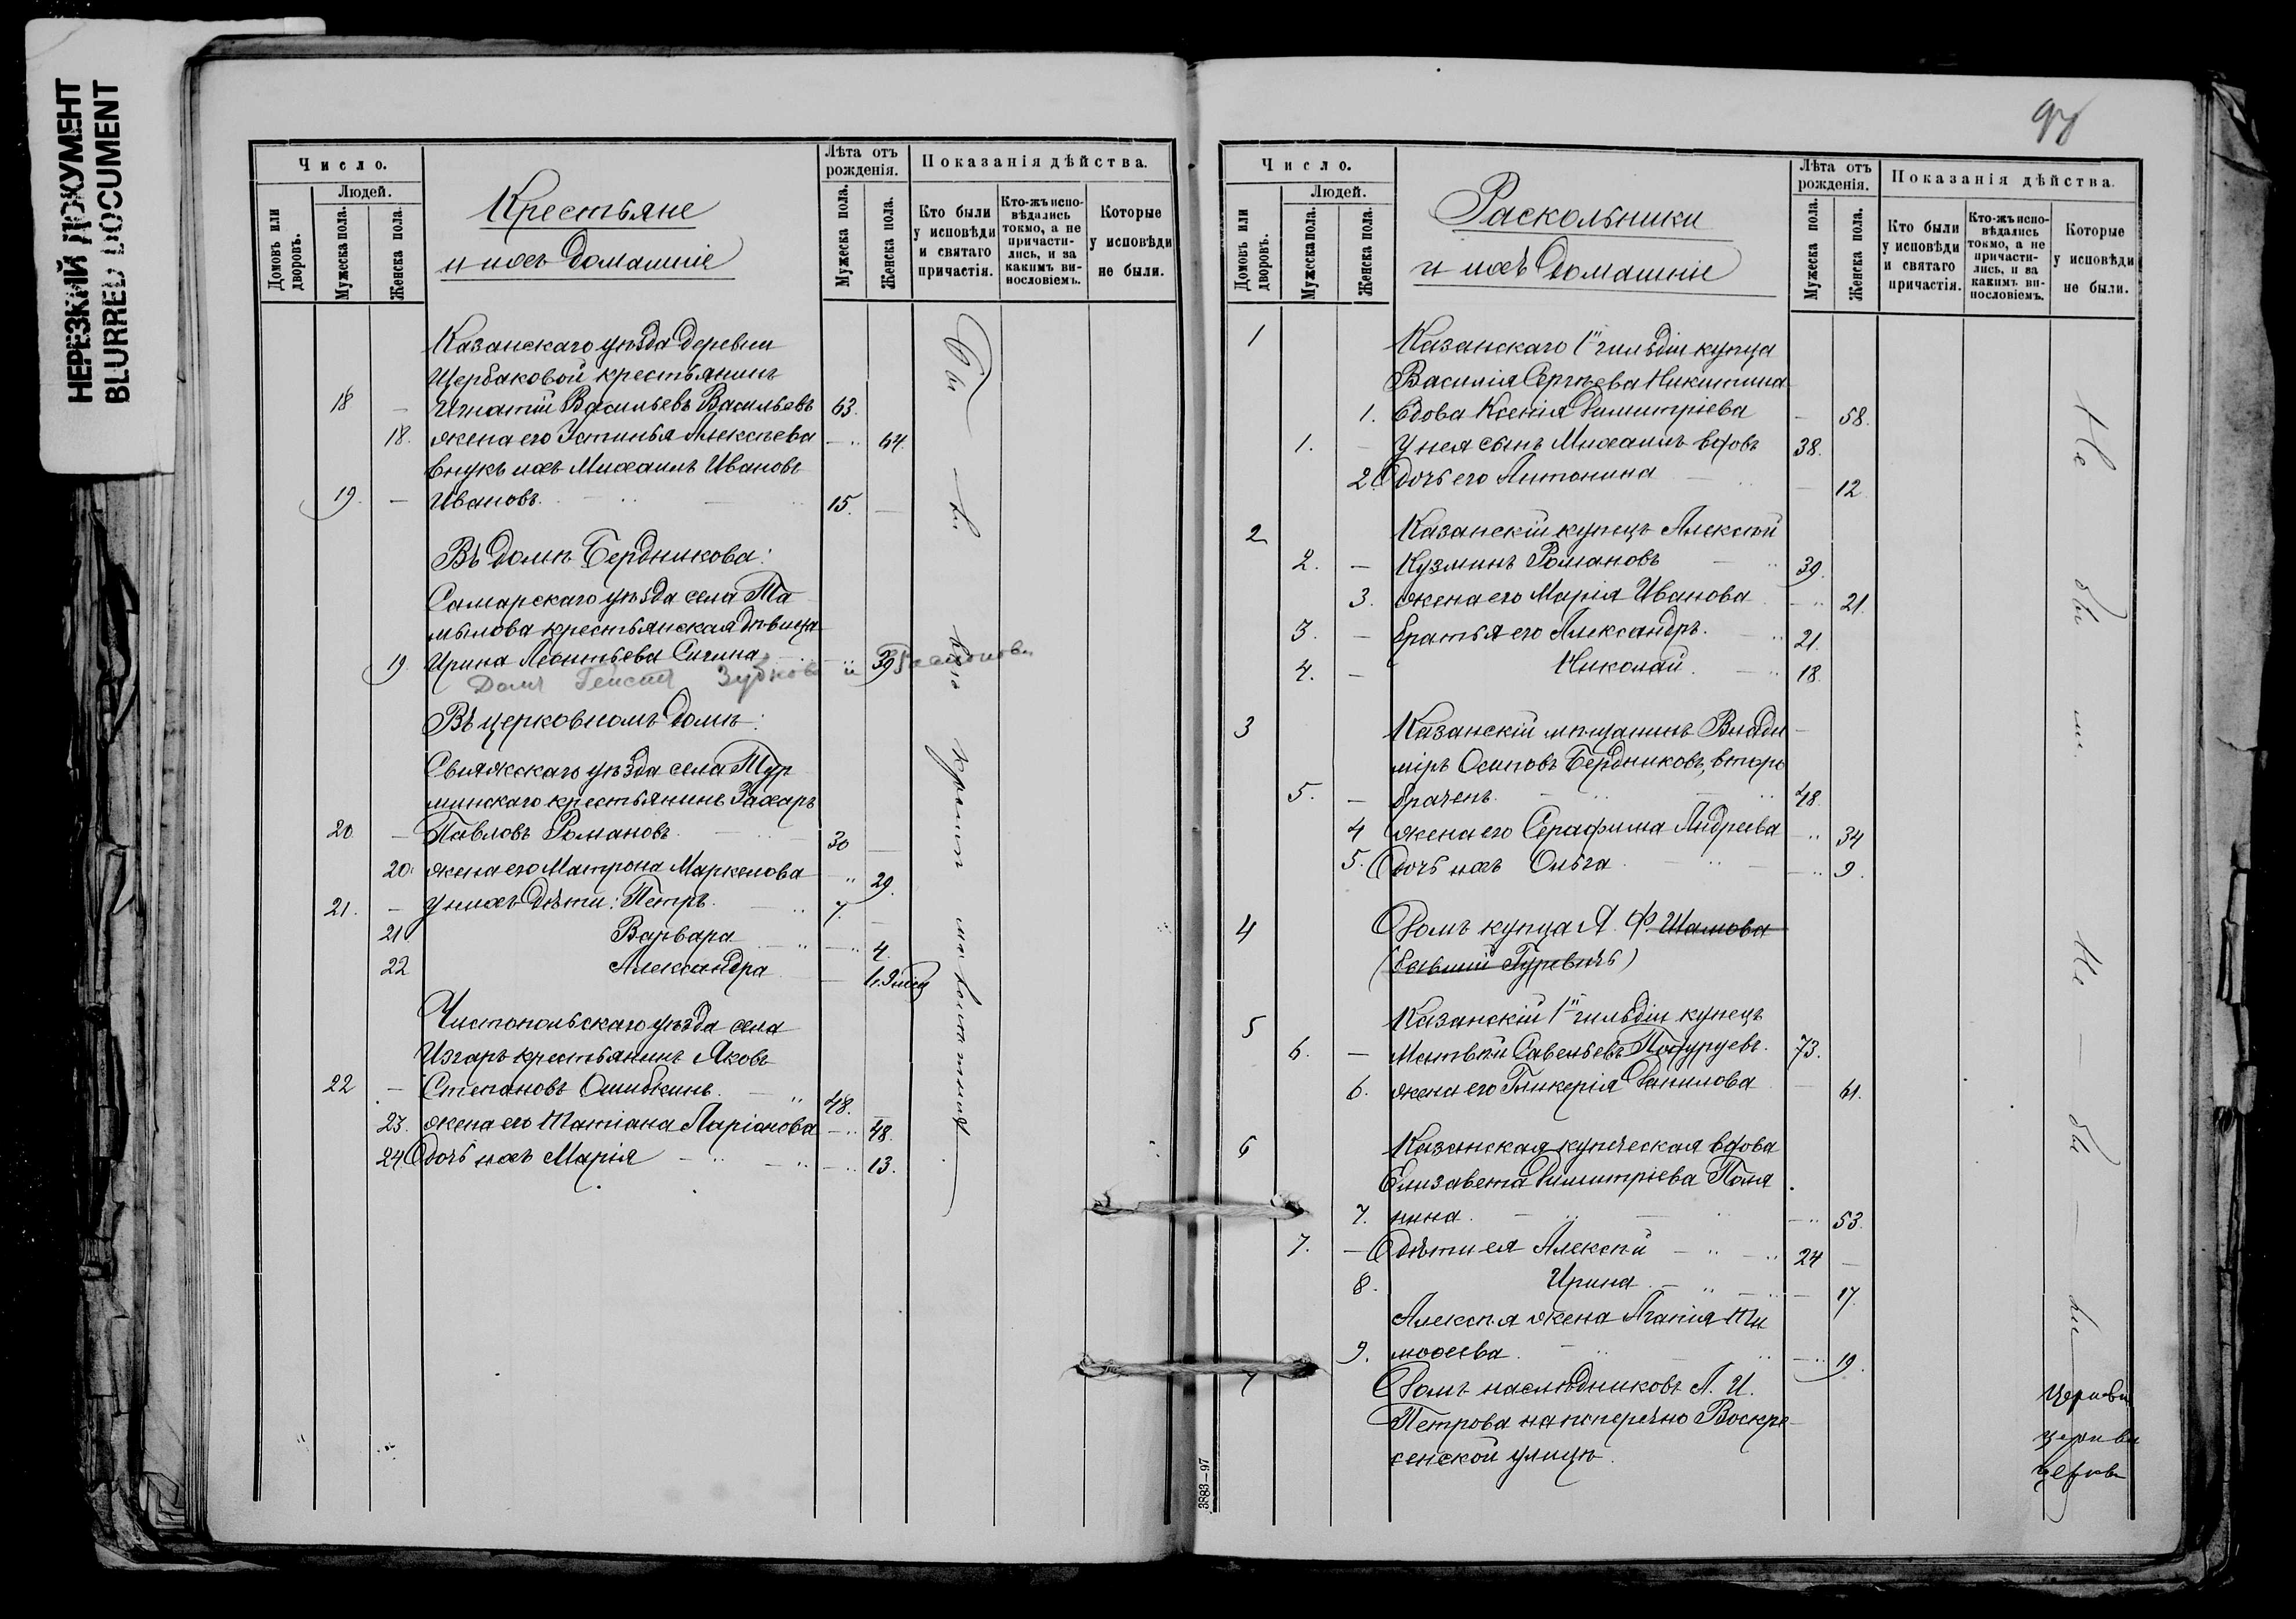 НЕРЕЗКИЙ ДОКУМЕНТ
BLURRED DOCUMENT
Число.
Людей.
Домовъ или дворовъ.
Мужеска пола.
Женска пола.
Крестьяне
и ихъ домашніе
Лѣта отъ рожденія.
Мужеска пола.
Женска пола.
Показанія дѣйства.
Кто были у исповѣди и святаго причастія.
Кто-жъ исповѣдались токмо, а не причастились, и за какимъ винословіемъ.
Которые у исповѣди не были.
Казанскаго уѣзда деревни
Щербаковой крестьянинъ
18 — Игнатій Васильевъ Васильевъ 63.
18. жена его Устинья Алексѣева — 64.
внукъ ихъ Михаилъ Ивановъ
19. — Ивановъ. 15. —
Въ домѣ Бердникова:
Самарскаго уѣзда села Та
мылова крестьянская дѣвица
19. Ирина Леонтьева Сичина 39
Домъ Зубкова
Въ церковномъ домѣ:
Свіяжскаго уѣзда села Тур
минскаго крестьянинъ Захаръ
20 — Павловъ Романовъ. 30 —
20. жена его Матрона Маркелова 29.
21. — у нихъ дѣти: Петръ. 7. —
21 Варвара — 4.
22 Александра — 1.
Чистопольскаго уѣзда села
Изгаръ крестьянинъ Яковъ
22 — Степановъ Ошибкинъ. 48. —
23. жена его Татіана Ларіонова — 48.
24 дочь ихъ Марія — 13.
Бы — ли
у
97
Число.
Людей.
Домовъ или дворовъ.
Мужеска пола.
Женска пола.
Раскольники
и ихъ домашніе
Лѣта отъ рожденія.
Мужеска пола.
Женска пола.
Показанія дѣйства.
Кто были у исповѣди и святаго причастія.
Кто-жъ исповѣдались токмо, а не причастились, и за какимъ винословіемъ.
Которые у исповѣди не были.
1 Казанскаго 1й гильдіи купца
Василія Сергѣева Никитина
1. вдова Ксенія Димитріева — 58.
1. — у нея сынъ Михаилъ вдовъ 38.
2. дочь его Антонина — 12
2 Казанскій купецъ Алексѣй
2. — Кузминъ Романовъ 39.
3. жена его Марія Иванова — 21.
3. — братья его Александръ. 21.
4. — Николай. 18.
3 Казанскій мѣщанинъ Влади—
міръ Осиповъ Бердниковъ, второ
5. — браченъ. 48.
4 жена его Серафима Андреева — 34
5. дочь ихъ Ольга. — 9.
4 Домъ купца Я. Ф. Шамова
(бывшій Гуревичъ)
5 Казанскій 1й гильдіи купецъ
6. — Матвѣй Савельевъ Подуруевъ. 73.
6. жена его Гликерія Данилова — 61.
6 Казанская купеческая вдова
Елизавета Димитріева Поля
7. нина. — 53.
7. — дѣти ея Алексѣй 24 —
8. Ирина — 17.
Алексѣя жена Агапія Ти
9. моѳеева. — 19.
7 Домъ наслѣдниковъ А. И.
Петрова на поперечно Воскре—
сенской улицѣ.
Не бы — ли.
Не — бы — ли
церкви
церкви
церкви
3883—97